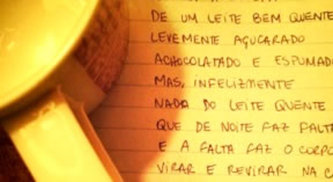 DE UM LEITE BEM QUENTE
LEVEMENTE AÇUCARADO
ACHOCOLATADO E ESPUMAD
MAS, INFELIZMENTE
NADA DO LEITE QUENTE
QUE DE NOITE FAZ FALTA
E A FALTA FAZ O CORPO
VIRAR E REVIRAR NA C